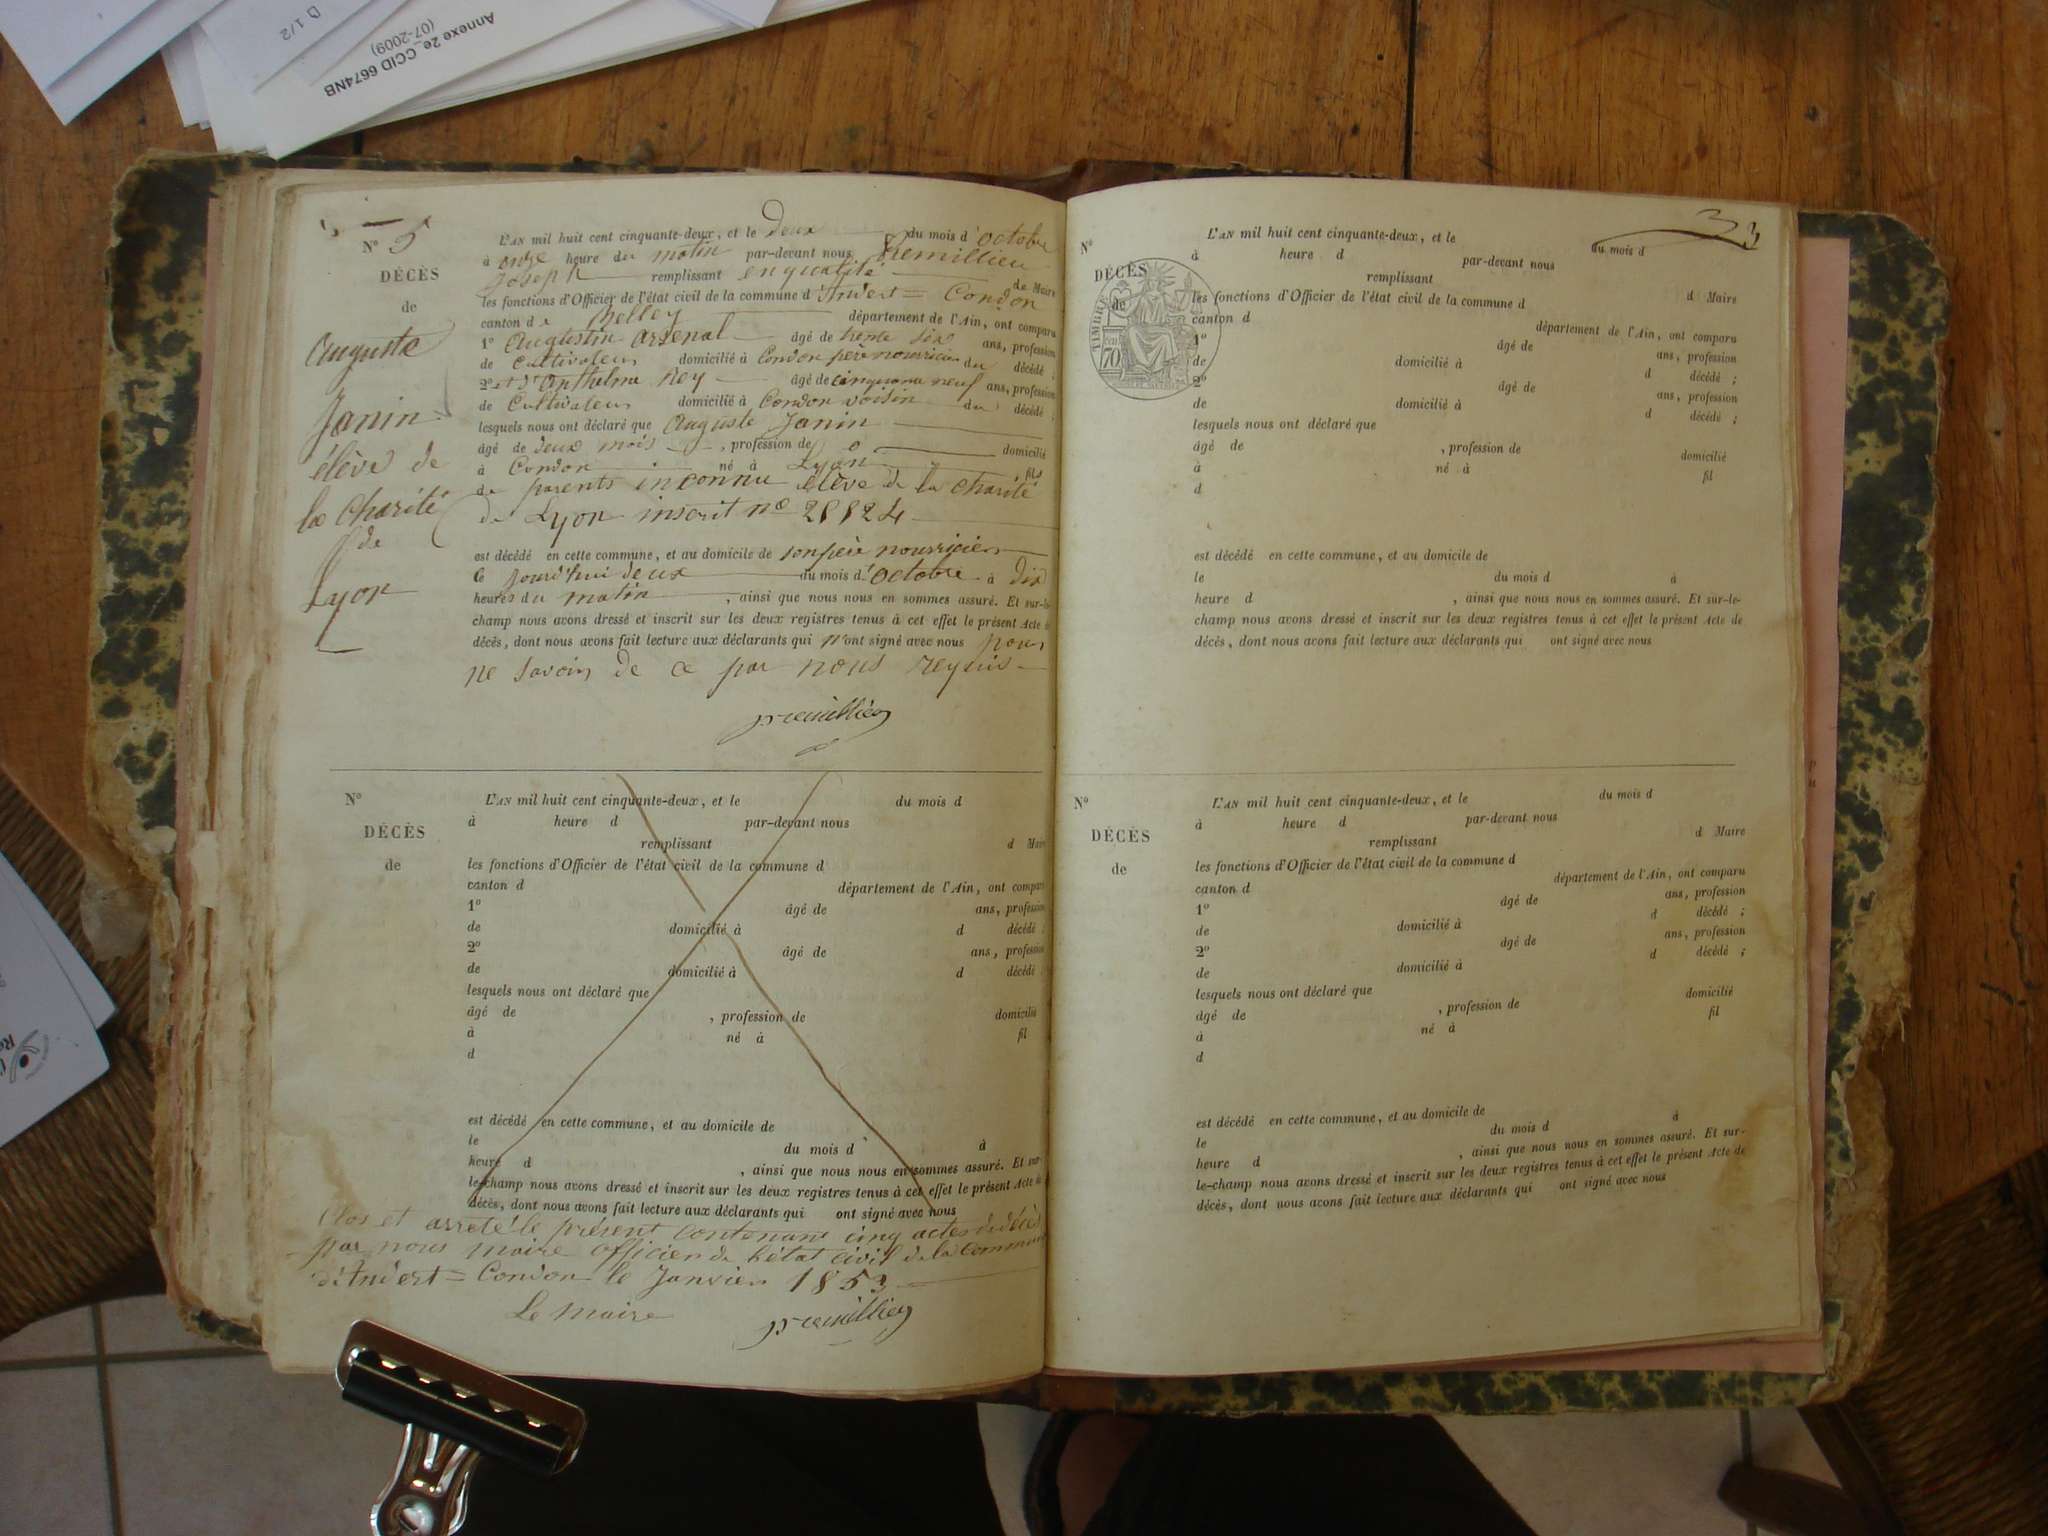 D 1/2
Annexe 2e_CCID 6674NB
(07-2009)
N° 5
DÉCÈS
de
Auguste
Janin
élève de
la Charité
de
Lyon
L'AN mil huit cent cinquante-deux, et le deux du mois d'octobre
à onze heure du matin par-devant nous Premillieu
Joseph remplissant en qualité de Maire
les fonctions d'Officier de l'état civil de la commune d'Andert=Condon
canton de Belley département de l'Ain, ont comparu
1° Augustin Arsenal âgé de trente six ans, profession
de Cultivateur domicilié à Condon père nourricier du décédé ;
2° et Sr Anthelme Rey âgé de cinquante neuf ans, profession
de Cultivateur domicilié à Condon voisin du décédé ;
lesquels nous ont déclaré que Auguste Janin
âgé de deux mois , profession de domicilié
à Condon né à Lyon fils
de parents inconnu élève de la charité
de Lyon inscrit n°
est décédé en cette commune, et au domicile de son père nourricier
le jourd'hui deux du mois d'octobre à dix
heures du matin , ainsi que nous nous en sommes assuré. Et sur-le-
champ nous avons dressé et inscrit sur les deux registres tenus à cet effet le présent Acte de
décès, dont nous avons fait lecture aux déclarants qui n'ont signé avec nous pour
ne savoir de ce par nous requis
premillieu
N°
DÉCÈS
de
L'AN mil huit cent cinquante-deux, et le du mois d
à heure d par-devant nous
remplissant d Maire
les fonctions d'Officier de l'état civil de la commune d
canton d département de l'Ain, ont comparu
1° âgé de ans, profession
de domicilié à d décédé ;
2° âgé de ans, profession
de domicilié à d décédé ;
lesquels nous ont déclaré que
âgé de , profession de domicilié
à né à fil
d
est décédé en cette commune, et au domicile de
le du mois d à
heure d , ainsi que nous nous en sommes assuré. Et sur-
le-champ nous avons dressé et inscrit sur les deux registres tenus à cet effet le présent Acte de
décès, dont nous avons fait lecture aux déclarants qui ont signé avec nous
Clos et arreté le présent contenant cinq actes de décès
par nous maire officier de l'état civil de la commune
d'Andert=Condon le Janvier 1853
Le maire premillieu
33
N°
DÉCÈS
de
TIMBRE
70
L'AN mil huit cent cinquante-deux, et le du mois d
à heure d par-devant nous
remplissant d Maire
les fonctions d'Officier de l'état civil de la commune d
canton d département de l'Ain, ont comparu
1° âgé de ans, profession
de domicilié à d décédé ;
2° âgé de ans, profession
de domicilié à d décédé ;
lesquels nous ont déclaré que
âgé de , profession de domicilié
à né à fil
d
est décédé en cette commune, et au domicile de
le du mois d à
heure d , ainsi que nous nous en sommes assuré. Et sur-le-
champ nous avons dressé et inscrit sur les deux registres tenus à cet effet le présent Acte de
décès, dont nous avons fait lecture aux déclarants qui ont signé avec nous
N°
DÉCÈS
de
L'AN mil huit cent cinquante-deux, et le du mois d
à heure d par-devant nous
remplissant d Maire
les fonctions d'Officier de l'état civil de la commune d
canton d département de l'Ain, ont comparu
1° âgé de ans, profession
de domicilié à d décédé ;
2° âgé de ans, profession
de domicilié à d décédé ;
lesquels nous ont déclaré que
âgé de , profession de domicilié
à né à fil
d
est décédé en cette commune, et au domicile de
le du mois d à
heure d , ainsi que nous nous en sommes assuré. Et sur-
le-champ nous avons dressé et inscrit sur les deux registres tenus à cet effet le présent Acte de
décès, dont nous avons fait lecture aux déclarants qui ont signé avec nous